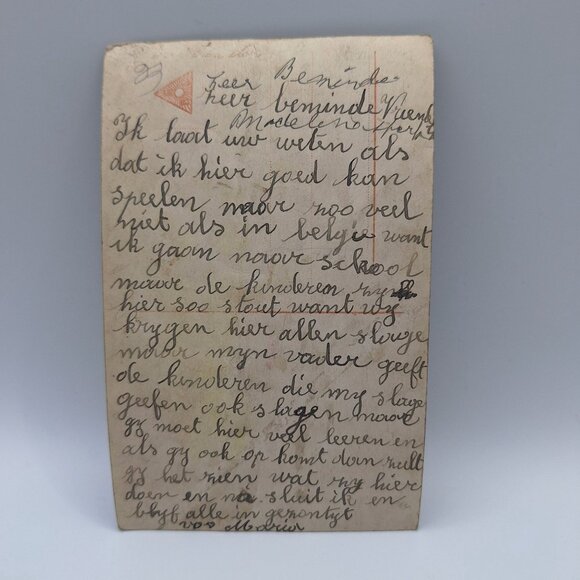 23
zeer Beminde
heer beminde Vriend
Madelena
Ik laat uw weten als
dat ik hier goed kan
speelen maar zoo veel
niet als in belgie want
ik gaan naar school
maar de kinderen zyn
hier soo stout want wy
krygen hier allen slage
maar myn vader geeft
de kinderen die my slage
geefen ook slagen maar
gy moet hier veel leeren en
als gy ook op komt dan zult
gy het zien wat zy hier
doen en nu sluit ik en
blyf alle in gezontyt
voo Maria